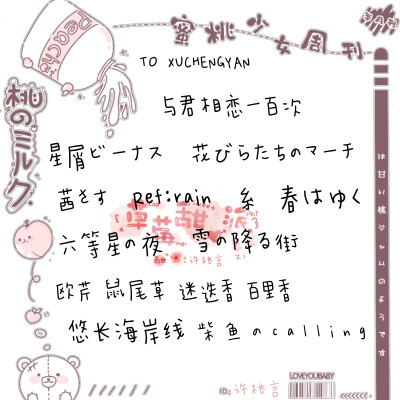 蜜桃少女周刊
Peach
桃のミルク
TO XUCHENGYAN
与君相恋一百次
星屑ビーナス 花びらたちのマーチ
茜さす Ref:rain 糸 春はゆく
草莓甜派
六等星の夜 雪の降る街
:许桉言
欧芹 鼠尾草 迷迭香 百里香
悠长海岸线 柴鱼のcalling
は甘い桃ジャムのようです
LOVEYOUBABY
ID: 许桉言